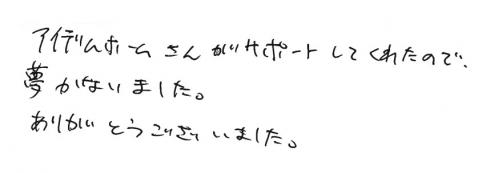 アイデムホームさんがサポートしてくれたので、
夢がかないました。
ありがとうございました。